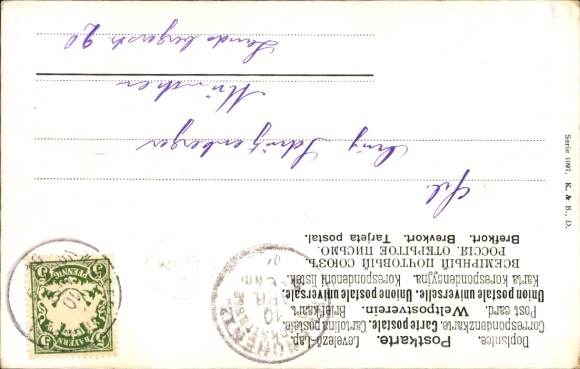 Dopisnice. Postkarte. Levelező-Lap.
Correspondenzkarte. Carte postale. Cartolina postale.
Post card. Weltpostverein. Briefkaart.
Union postale universelle. Unione postale universale.
Karta korespondencyjna. Korespondenční lístek.
ВСЕМІРНЫЙ ПОЧТОВЫЙ СОЮЗЪ.
РОССІЯ. ОТКРЫТОЕ ПИСЬМО.
Brefkort. Brevkort. Tarjeta postal.
Frl.
Schützenberger
München
Landsbergerstr 20
Serie 1097. K. & B., D.
5 PFENNIG 5
BAYERN
MÜNCHEN
10 APR